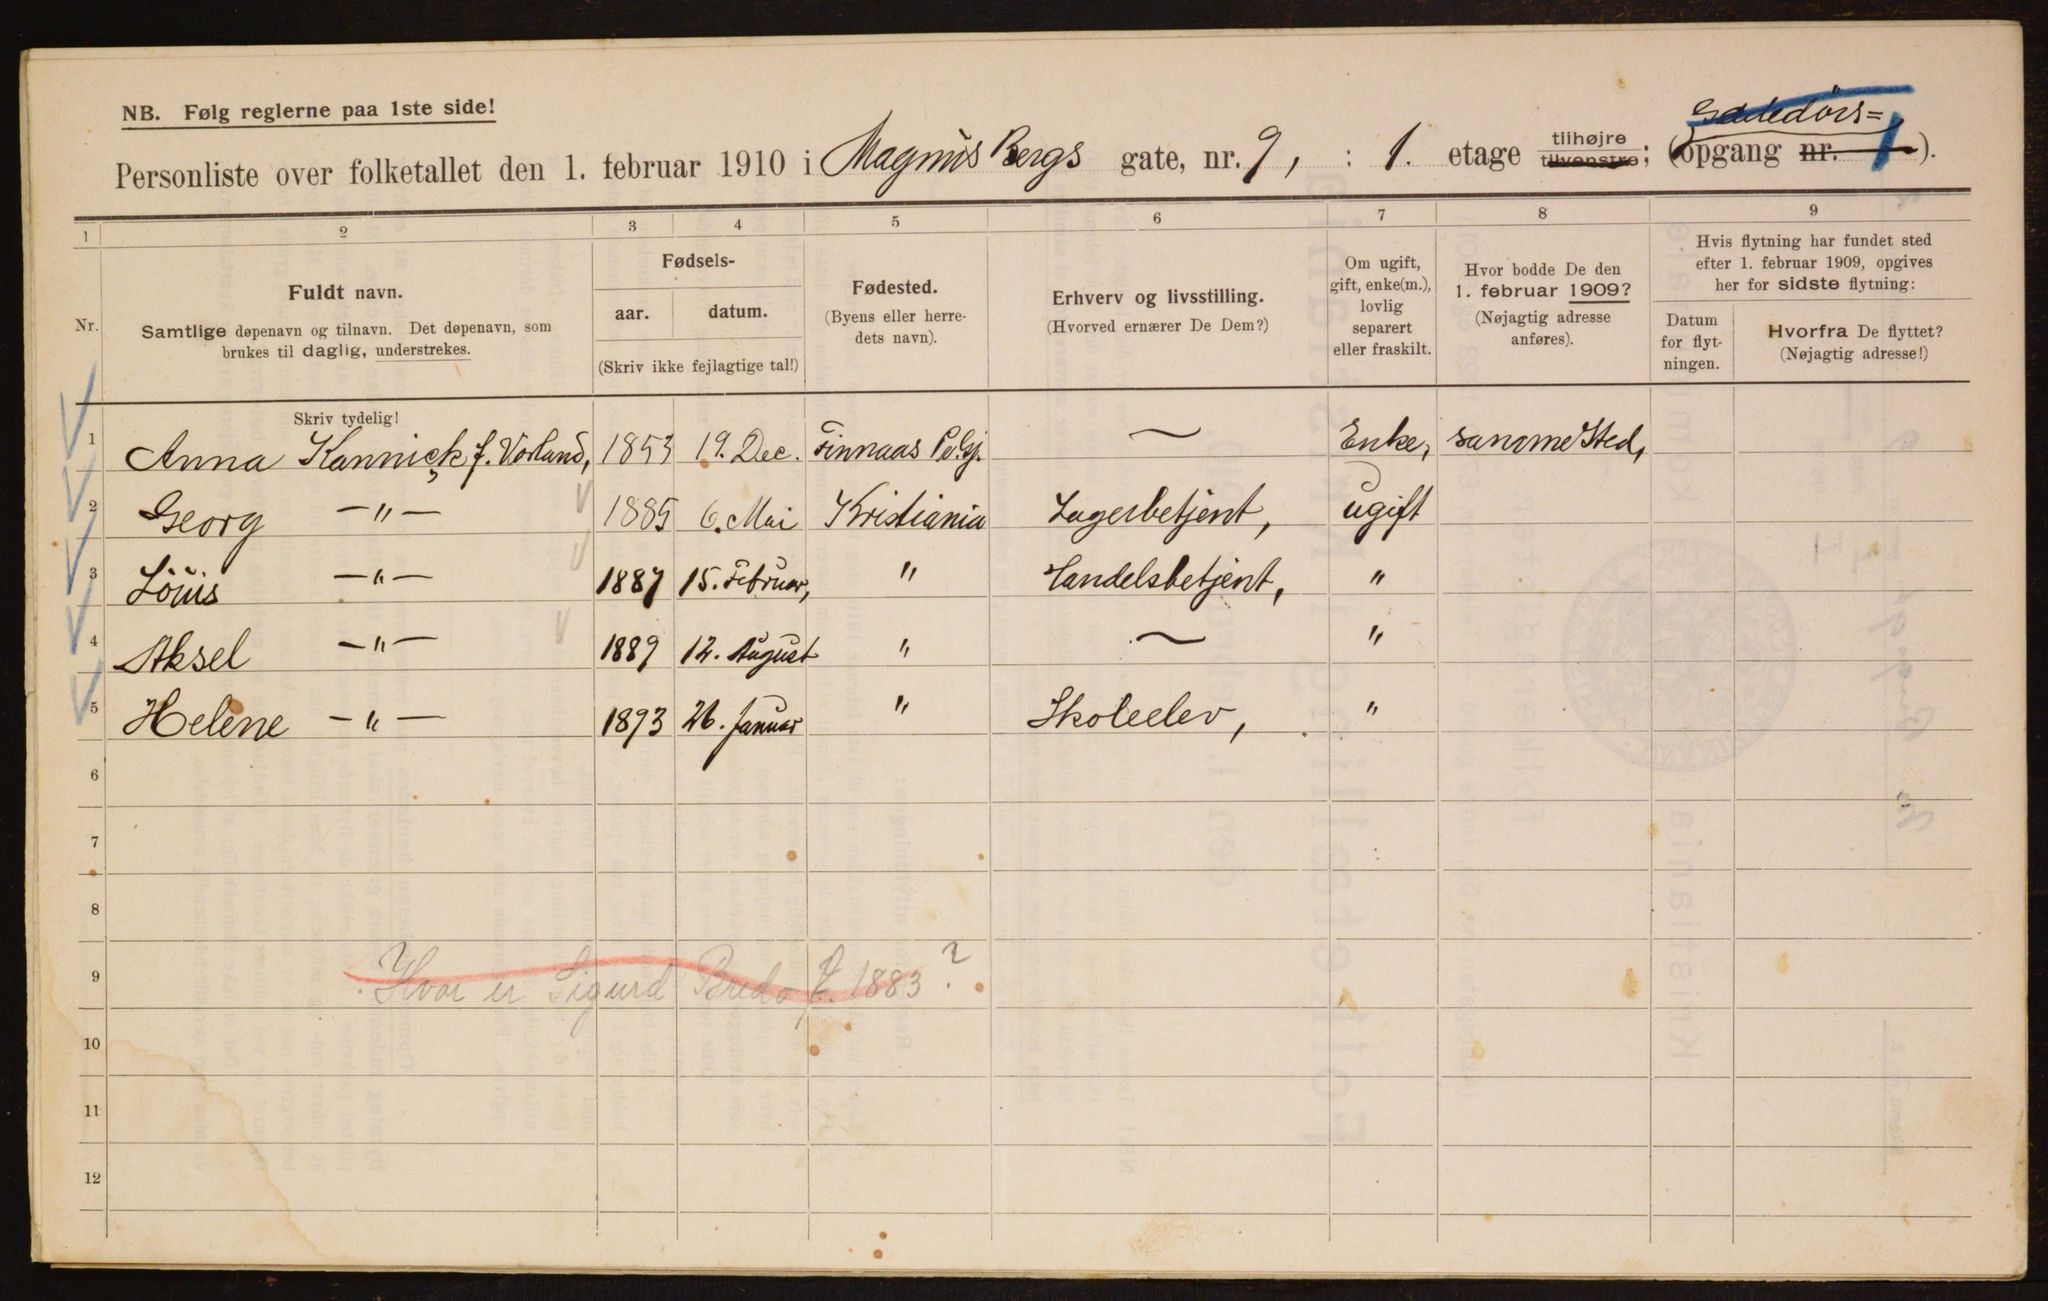 NB. Følg reglerne paa 1ste side!
Gadedørs=
Personliste over folketallet den 1. februar 1910 i Magnus Bergs gate, nr. 9, : 1. etage tilhøjre tilvenstre; (opgang nr. 1).
1 2 3 4 5 6 7 8 9
Nr.
Fuldt navn.
Samtlige døpenavn og tilnavn. Det døpenavn, som
brukes til daglig, understrekes.
Fødsels-
aar. datum.
(Skriv ikke fejlagtige tal!)
Fødested.
(Byens eller herre-
dets navn).
Erhverv og livsstilling.
(Hvorved ernærer De Dem?)
Om ugift,
gift, enke(m.),
lovlig
separert
eller fraskilt.
Hvor bodde De den
1. februar 1909?
(Nøjagtig adresse
anføres).
Hvis flytning har fundet sted
efter 1. februar 1909, opgives
her for sidste flytning:
Datum
for flyt-
ningen.
Hvorfra De flyttet?
(Nøjagtig adresse!)
Skriv tydelig!
1 Anna Kannick f. Vorland, 1853 19. Dec. Finnaas P.Gj. — Enke, samme Sted,
2 Georg —"— 1885 6. Mai Kristiania Lagerbetjent, ugift
3 Louis —"— 1887 15. Februar, " Handelsbetjent, "
4 Aksel —"— 1889 12. August " — "
5 Helene —"— 1893 26. Januar " Skoleelev, "
6
7
8
9 Hvor er Sigurd Bredo f. 1883?
10
11
12